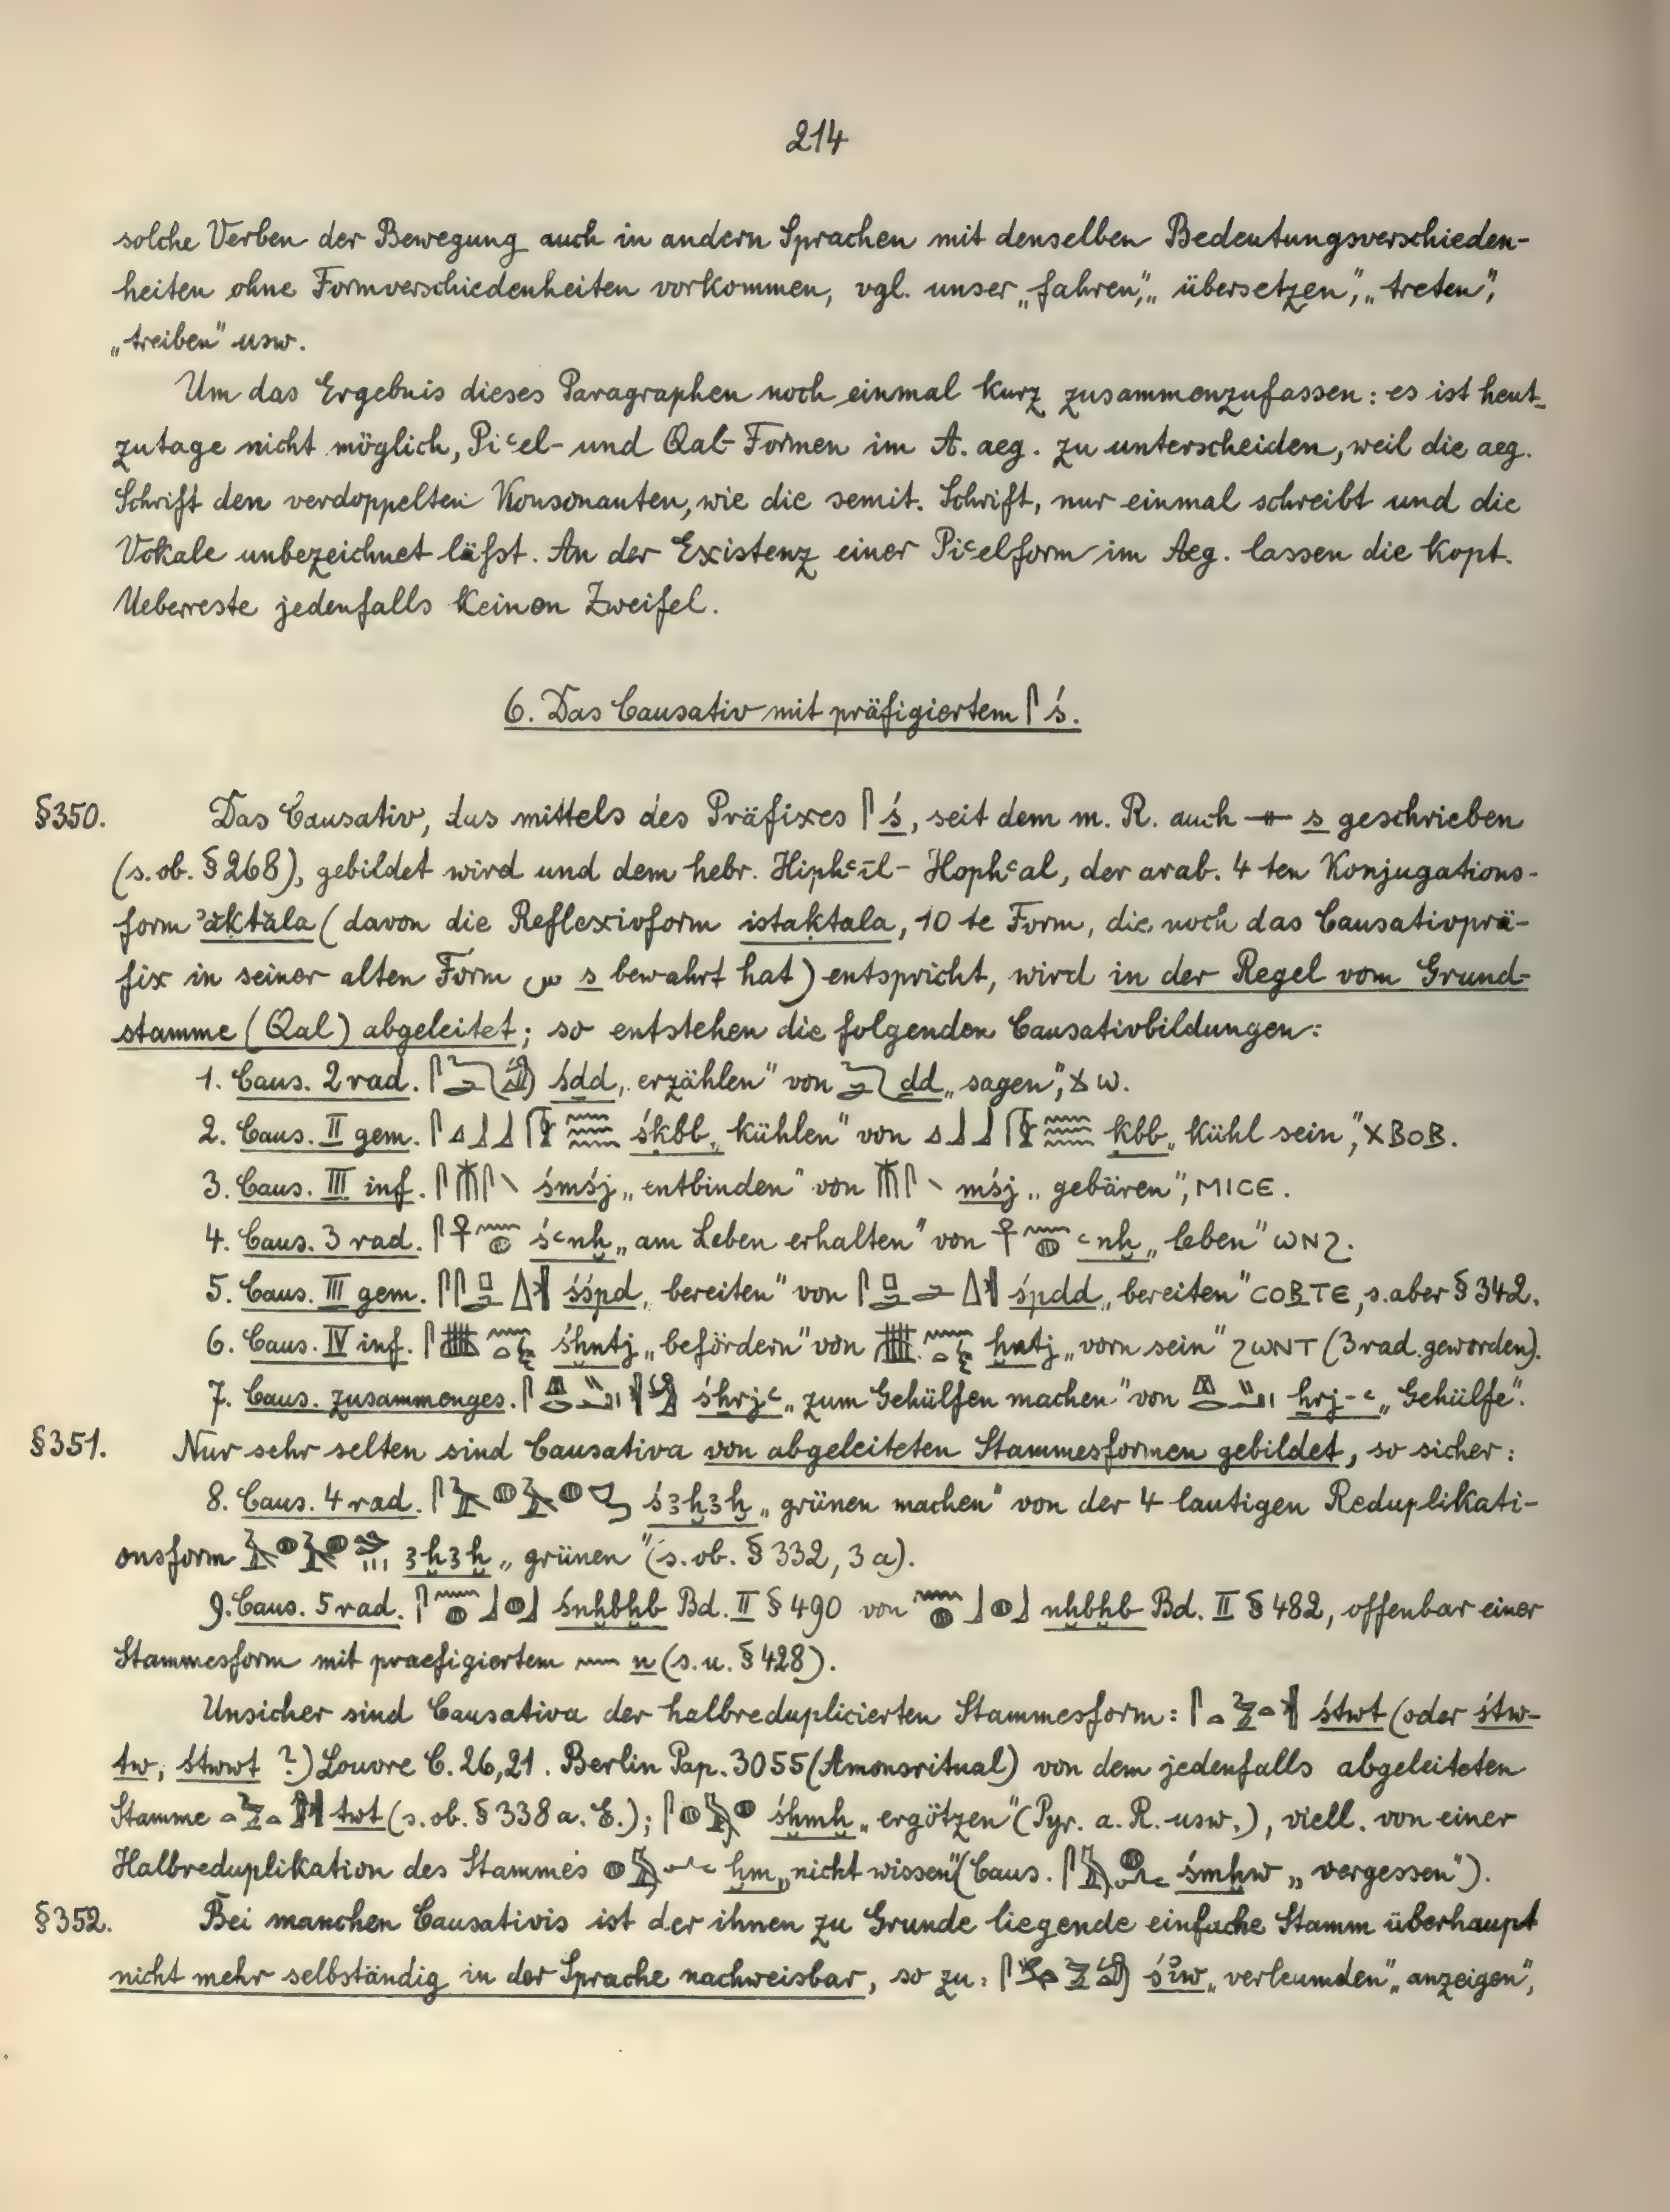 214
solche Verben der Bewegung auch in andern Sprachen mit denselben Bedeutungsverschieden-
heiten ohne Formverschiedenheiten vorkommen, vgl. unser „fahren“, „übersetzen“, „treten“,
„treiben“ usw.
Um das Ergebnis dieses Paragraphen noch einmal kurz zusammenzufassen: es ist heut-
zutage nicht möglich, Piꜥel- und Qal-Formen im A. aeg. zu unterscheiden, weil die aeg.
Schrift den verdoppelten Konsonanten, wie die semit. Schrift, nur einmal schreibt und die
Vokale unbezeichnet läfst. An der Existenz einer Piꜥelform im Aeg. lassen die kopt.
Ueberreste jedenfalls keinen Zweifel.
6. Das Causativ mit präfigiertem 𓋴 ś.
§350. Das Causativ, das mittels des Präfixes 𓋴 ś, seit dem m. R. auch 𓊃 s geschrieben
(s. ob. § 268), gebildet wird und dem hebr. Hiphꜥīl- Hophꜥal, der arab. 4 ten Konjugations-
form ʾăktăla (davon die Reflexivform istaktala, 10 te Form, die noch das Causativprä-
fix in seiner alten Form س s bewahrt hat) entspricht, wird in der Regel vom Grund-
stamme (Qal) abgeleitet; so entstehen die folgenden Causativbildungen:
1. Caus. 2 rad. śḏd „erzählen“ von ḏd „sagen“, ϫω.
2. Caus. II gem. śḳbb „kühlen“ von ḳbb „kühl sein“, ⲭⲃⲟⲃ.
3. Caus. III inf. śmśj „entbinden“ von mśj „gebären“, ⲙⲓⲥⲉ.
4. Caus. 3 rad. śꜥnḫ „am Leben erhalten“ von ꜥnḫ „leben“ ⲱⲛϩ.
5. Caus. III gem. śśpd „bereiten“ von śpdd „bereiten“ ⲥⲟⲃⲧⲉ, s. aber § 342.
6. Caus. IV inf. śḫntj „befördern“ von ḫntj „vorn sein“ ϩⲱⲛⲧ (3 rad. geworden).
7. Caus. zusammenges. śhrjꜥ „zum Gehülfen machen“ von hrj-ꜥ „Gehülfe“.
§351. Nur sehr selten sind Causativa von abgeleiteten Stammesformen gebildet, so sicher:
8. Caus. 4 rad. śꜣḫꜣḫ „grünen machen“ von der 4 lautigen Reduplikati-
onsform ꜣḫꜣḫ „grünen“ (s. ob. § 332, 3 a).
9. Caus. 5 rad. śnḫbḫb Bd. II § 490 von nḫbḫb Bd. II § 482, offenbar einer
Stammesform mit praefigiertem 𓈖 n (s. u. § 428).
Unsicher sind Causativa der halbreduplicierten Stammesform: śtwt (oder śtw-
tw, śtwwt ?) Louvre C. 26,21. Berlin Pap. 3055 (Amonsritual) von dem jedenfalls abgeleiteten
Stamme twt (s. ob. § 338 a. E.); śḫmḫ „ergötzen“ (Pyr. a. R. usw.), viell. von einer
Halbreduplikation des Stammes ḫm „nicht wissen“ (Caus. śmḫw „vergessen“).
§352. Bei manchen Causativis ist der ihnen zu Grunde liegende einfache Stamm überhaupt
nicht mehr selbständig in der Sprache nachweisbar, so zu: „verleumden“ „anzeigen“,